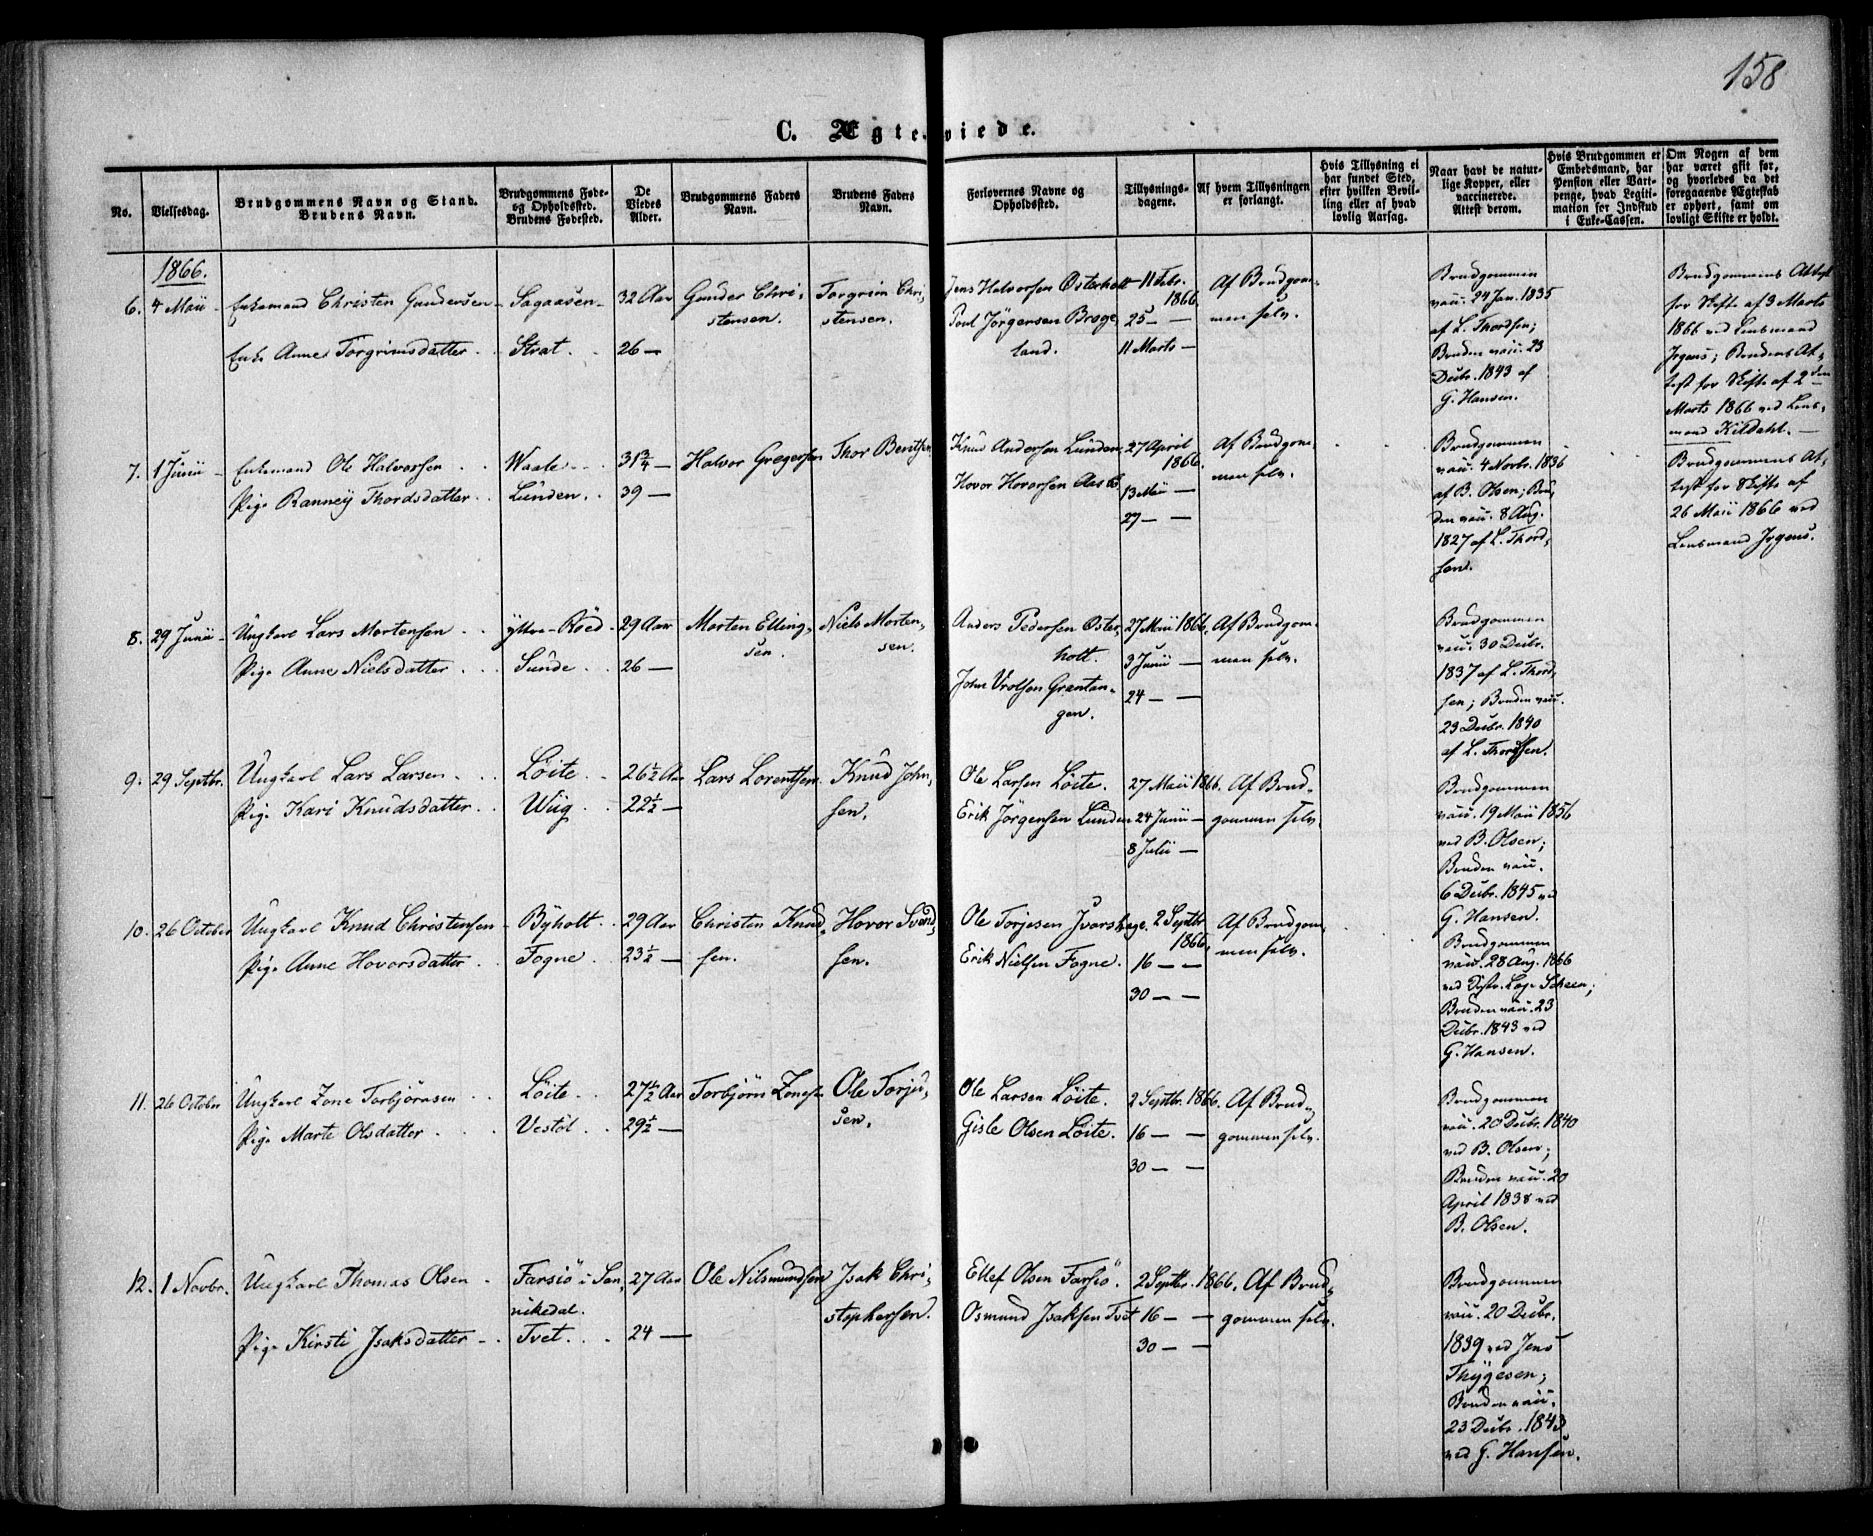 158
C. Ægteviede.
No.
Vielsesdag.
Brudgommens Navn og Stand.
Brudens Navn.
Brudgommens Føde-
og Opholdssted.
Brudens Fødested.
De
Viedes
Alder.
Brudgommens Faders
Navn.
Brudens Faders
Navn.
Forlovernes Navne og
Opholdssted.
Tillysnings-
dagene.
Af hvem Tillysningen
er forlangt.
Hvis Tillysning ei
har fundet Sted,
efter hvilken Bevil-
ling eller af hvad
lovlig Aarsag.
Naar havt de natur-
lige Kopper, eller
vaccinerede.
Attest derom.
Hvis Brudgommen er
Embedsmand, har
Pension eller Vart-
penge, hvad Legiti-
mation for Indskud
i Enke-Cassen.
Om Nogen af dem
har været gift før,
og hvorledes da det
foregaaende Ægteskab
er ophørt, samt om
lovligt Skifte er holdt.
1866.
6. 4 Maii
Enkemand Christen Gundersen
Enke Anne Torgrimsdatter
Sagaasen
Strat
32 Aar
26 —
Gunder Chri-
stensen.
Torgrim Chri-
stensen.
Jens Halvorsen Østerholt
Poul Jörgensen Broge
land.
11 Febr.
1866
25 — —
11 Marts —
Af Brudgom-
men selv.
Brudgommen
vacc. 24 Jan. 1835
af L. Thordsen;
Bruden vacc. 23
Decbr. 1843 af
G. Hansen.
Brudgommens Attest
for Skifte af 3 Marts
1866 ved Lensmand
Jrgens; Brudens At-
test for Skifte af 2den
Marts 1866 ved Lens-
mand Kildahl. —
7. 1 Junii
Enkemand Ole Halvorsen
Pige Ranneÿ Thordsdatter
Waale
Lunden
31 3/4 —
39 —
Halvor Gregersen
Thor Berntsen
Knud Andersen Lunden
Hovor Hovorsen Aasb
27 April
1866.
13 Maii —
27 — —
Af Brudgom-
men selv.
Brudgommen
vacc. 4 Novbr. 1836
af B. Olsen; Bru-
den vacc. 8 Aug.
1827 af L. Thord-
sen.
Brudgommens At-
test for Skifte af
26 Maii 1866 ved
Lensmand Jrgens.
8. 29 Junii
Ungkarl Lars Mortensen
Pige Anne Nielsdatter
ÿttre-Röed
Sunde
29 Aar
26 —
Morten Elling-
sen.
Niels Morten-
sen.
Anders Pedersen Öster-
holt.
John Vrolsen Grantan-
gen.
27 Maii 1866.
3 Junii —
24 — —
Af Brudgom-
men selv.
Brudgommen
vacc. 30 Decbr.
1837 af L. Thord-
sen; Bruden vacc.
23 Decbr. 1840
af L. Thordsen.
9. 29 Septbr.
Ungkarl Lars Larsen
Pige Kari Knudsdatter
Löite
Wiig
26 1/2 Aar
22 1/2 —
Lars Lorentsen
Knud John-
sen.
Ole Larsen Löite.
Erik Jörgensen Lunden
27 Maii 1866.
24 Junii —
8 Julii —
Af Brud-
gommen selv.
Brudgommen
vacc. 19 Maii 1856
ved B. Olsen;
Bruden vacc.
6 Decbr. 1845 ved
G. Hansen.
10. 26 October
Ungkarl Knud Christensen
Pige Anne Hovorsdatter
Bÿholt
Fogne
29 Aar
23 1/2 —
Christen Knud-
sen.
Hovor Svend-
sen.
Ole Torjesen Jvarshage.
Erik Nielsen Fogne.
2 Septbr
1866.
16 — —
30 — —
Af Brudgom-
men selv.
Brudgommen
vacc. 28 Aug. 1866
ved Distr. Læge Scheen;
Bruden vacc. 23
Decbr. 1843 ved
G. Hansen.
11. 26 October
Ungkarl Zone Torbjörnsen
Pige Marte Olsdatter
Löite
Vestöl
27 1/2 Aar
29 1/2 —
Torbjörn Zonesen
Ole Torju-
sen.
Ole Larsen Löite.
Gisle Olsen Löite.
2 Septbr. 1866.
16 — —
30 — —
Af Brud-
gommen selv.
Brudgommen
vacc. 20 Decbr. 1840
ved B. Olsen;
Bruden vacc. 20
April 1838 ved
B. Olsen.
12. 1 Novbr.
Ungkarl Thomas Olsen
Pige Kirsti Jsaksdatter
Farsiö i San-
nikedal.
Tvet
27 Aar
24 —
Ole Nilsmundsen
Jsak Chri-
stophersen.
Ellef Olsen Farsiö.
Osmund Jsaksen Tvet
2 Septbr. 1866.
16 — —
30 — —
Af Brud-
gommen selv.
Brudgommen
vacc. 20 Decbr.
1839 ved Jens
Thÿgesen;
Bruden vacc.
23 Decbr. 1843
ved G. Hansen.